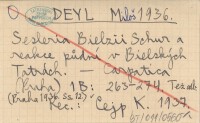 DEYL Miloš 1936.
Sesleria Bielzii Schur a
reakce půdy v Bielských
Tatrách. — Carpatica
Praha, 1B: 263-274. Též.
(Praha 1936
Rec.: Cejp K. 1937.